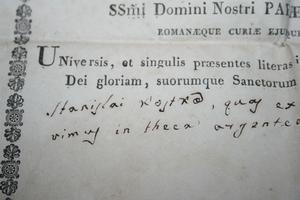 SSm̃i Domini Nostri PA
ROMANÆQUE CURIÆ EJUS
Universis, et singulis præsentes literas
Dei gloriam, suorumque Sanctorum
Stanislai Kostka, quas ex
vimus in theca argentea